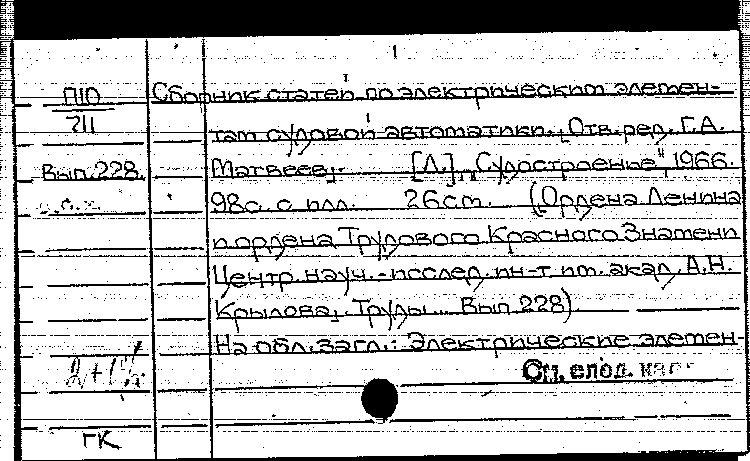 П10
211
Вып.228.
Сборник статей по электрическим элемен-
там судовой автоматики. Отв. ред. Г.А.
Матвеев. [Л.], "Судостроение", 1966.
98с. с илл. 26см. (Ордена Ленина
и ордена Трудового Красного Знамени
Центр. науч.-исслед. ин-т им. акад. А.Н.
Крылова. Труды. Вып. 228)
На обл. загл.: Электрические элемен-
См. след.
ГК